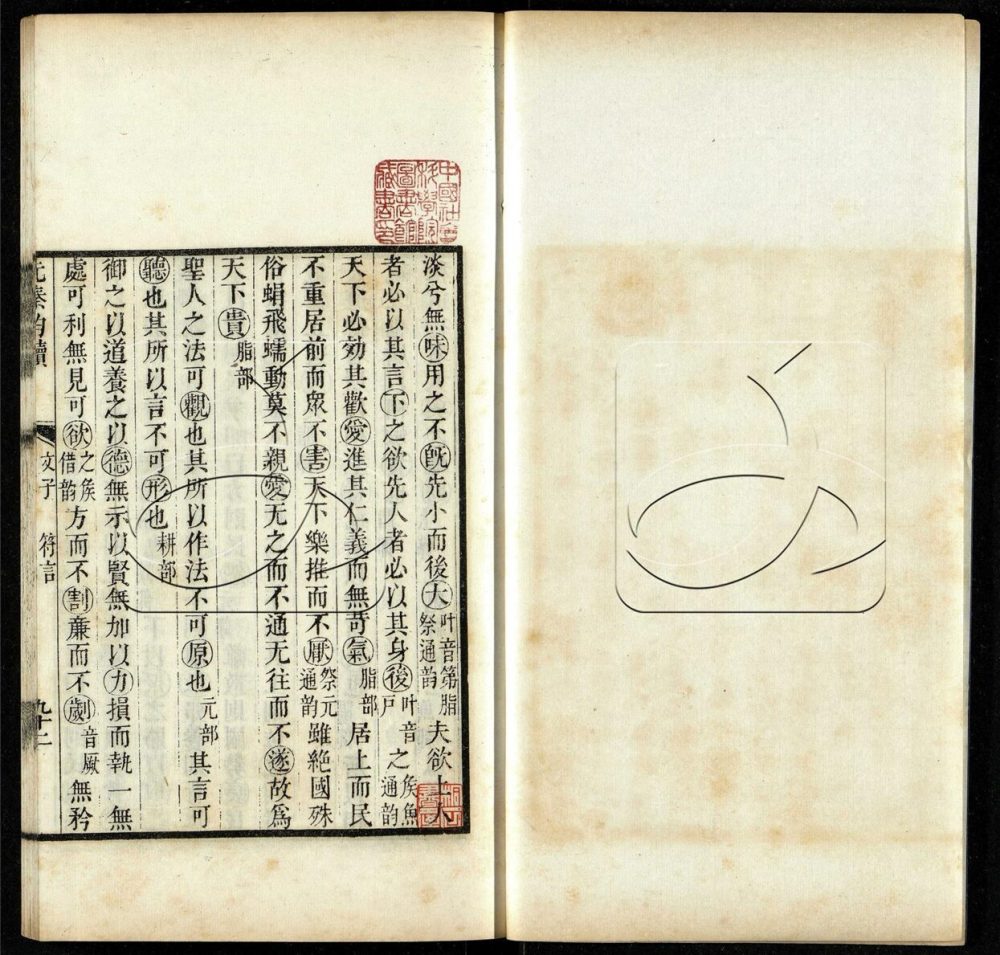 中國社會
科學院
圖書館
藏書印
淡兮無味用之不旣先小而後大叶音第脂祭通韵夫欲上人
者必以其言下之欲先人者必以其身後叶音戶之矦魚通韵
天下必効其歡愛進其仁義而無苛氣脂部居上而民
不重居前而衆不害天下樂推而不厭祭元通韵雖絶國殊
俗蜎飛蠕動莫不親愛无之而不通无往而不遂故爲
天下貴脂部
聖人之法可觀也其所以作法不可原也元部其言可
聽也其所以言不可形也耕部
御之以道養之以德無示以賢無加以力損而執一無
處可利無見可欲之矦借韵方而不割廉而不劌音厥無矜
先秦韵讀 文子 符言 九十二